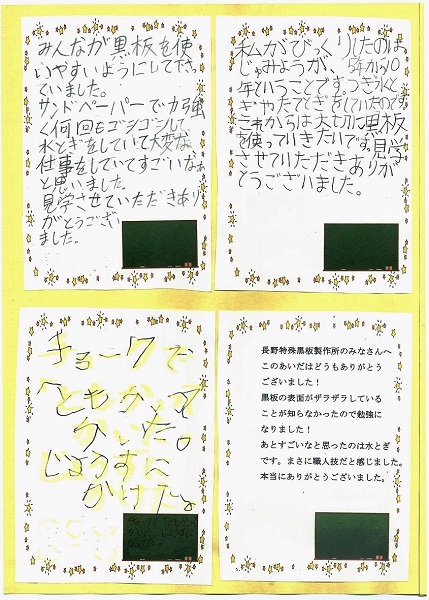 みんなが黒板を使
いやすいようにして下さっ
ていました。
サンドペーパーで力強
く何回もゴシゴシして
水とぎをしていて大変な
仕事をしていてすごいなぁ
と思いました。
見学させていただきあり
がとうござい
ました。
私がびっくりしたのは、
じゅみょうが、5年から10
年ということです。つきつく
これからは大切に黒板
を使っていきたいです。見学
させていただきありが
とうございました。
チョークで
ともかって
かいた。
じょうずに
かけたよ。
長野特殊黒板製作所のみなさんへ
このあいだはどうもありがとう
ございました！
黒板の表面がザラザラしている
ことが知らなかったので勉強に
なりました！
あとすごいなと思ったのは水とぎ
です。まさに職人技だと感じました。
本当にありがとうございました。